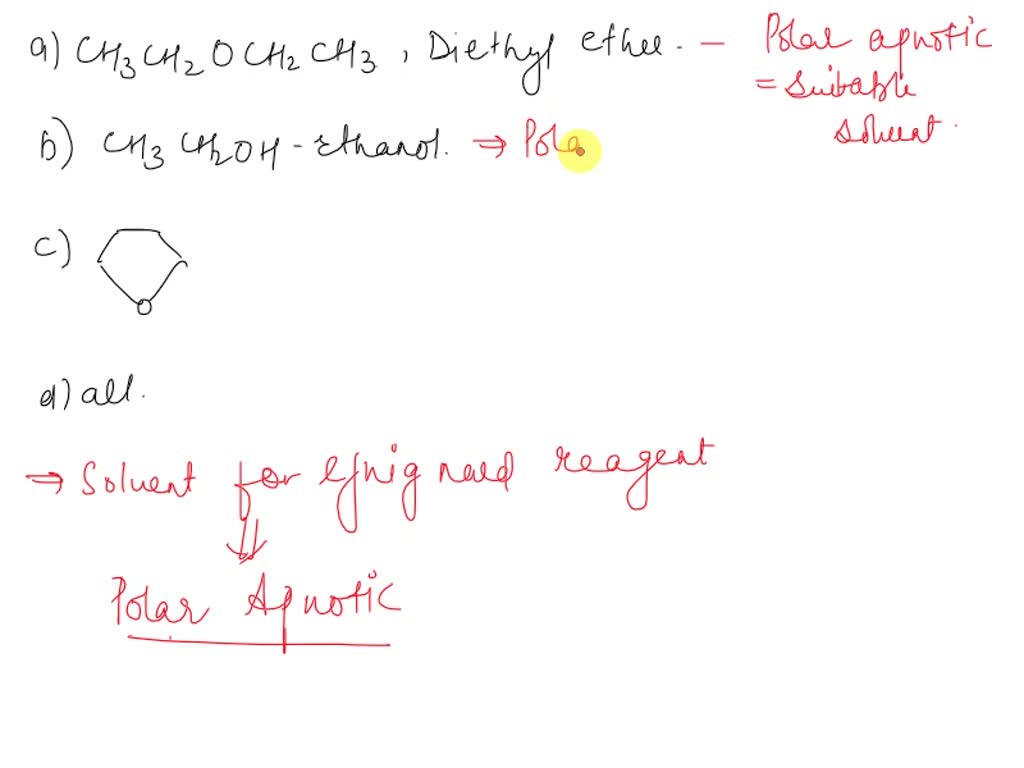 a) CH3CH2OCH2CH3, Diethyl ether. — Polar apnotic
= Suitable
solvent.
b) CH3CH2OH - Ethanol. ⇒ Pola
c)
O
d) all.
⇒ Solvent for Grignard reagent
⇓
Polar Apnotic